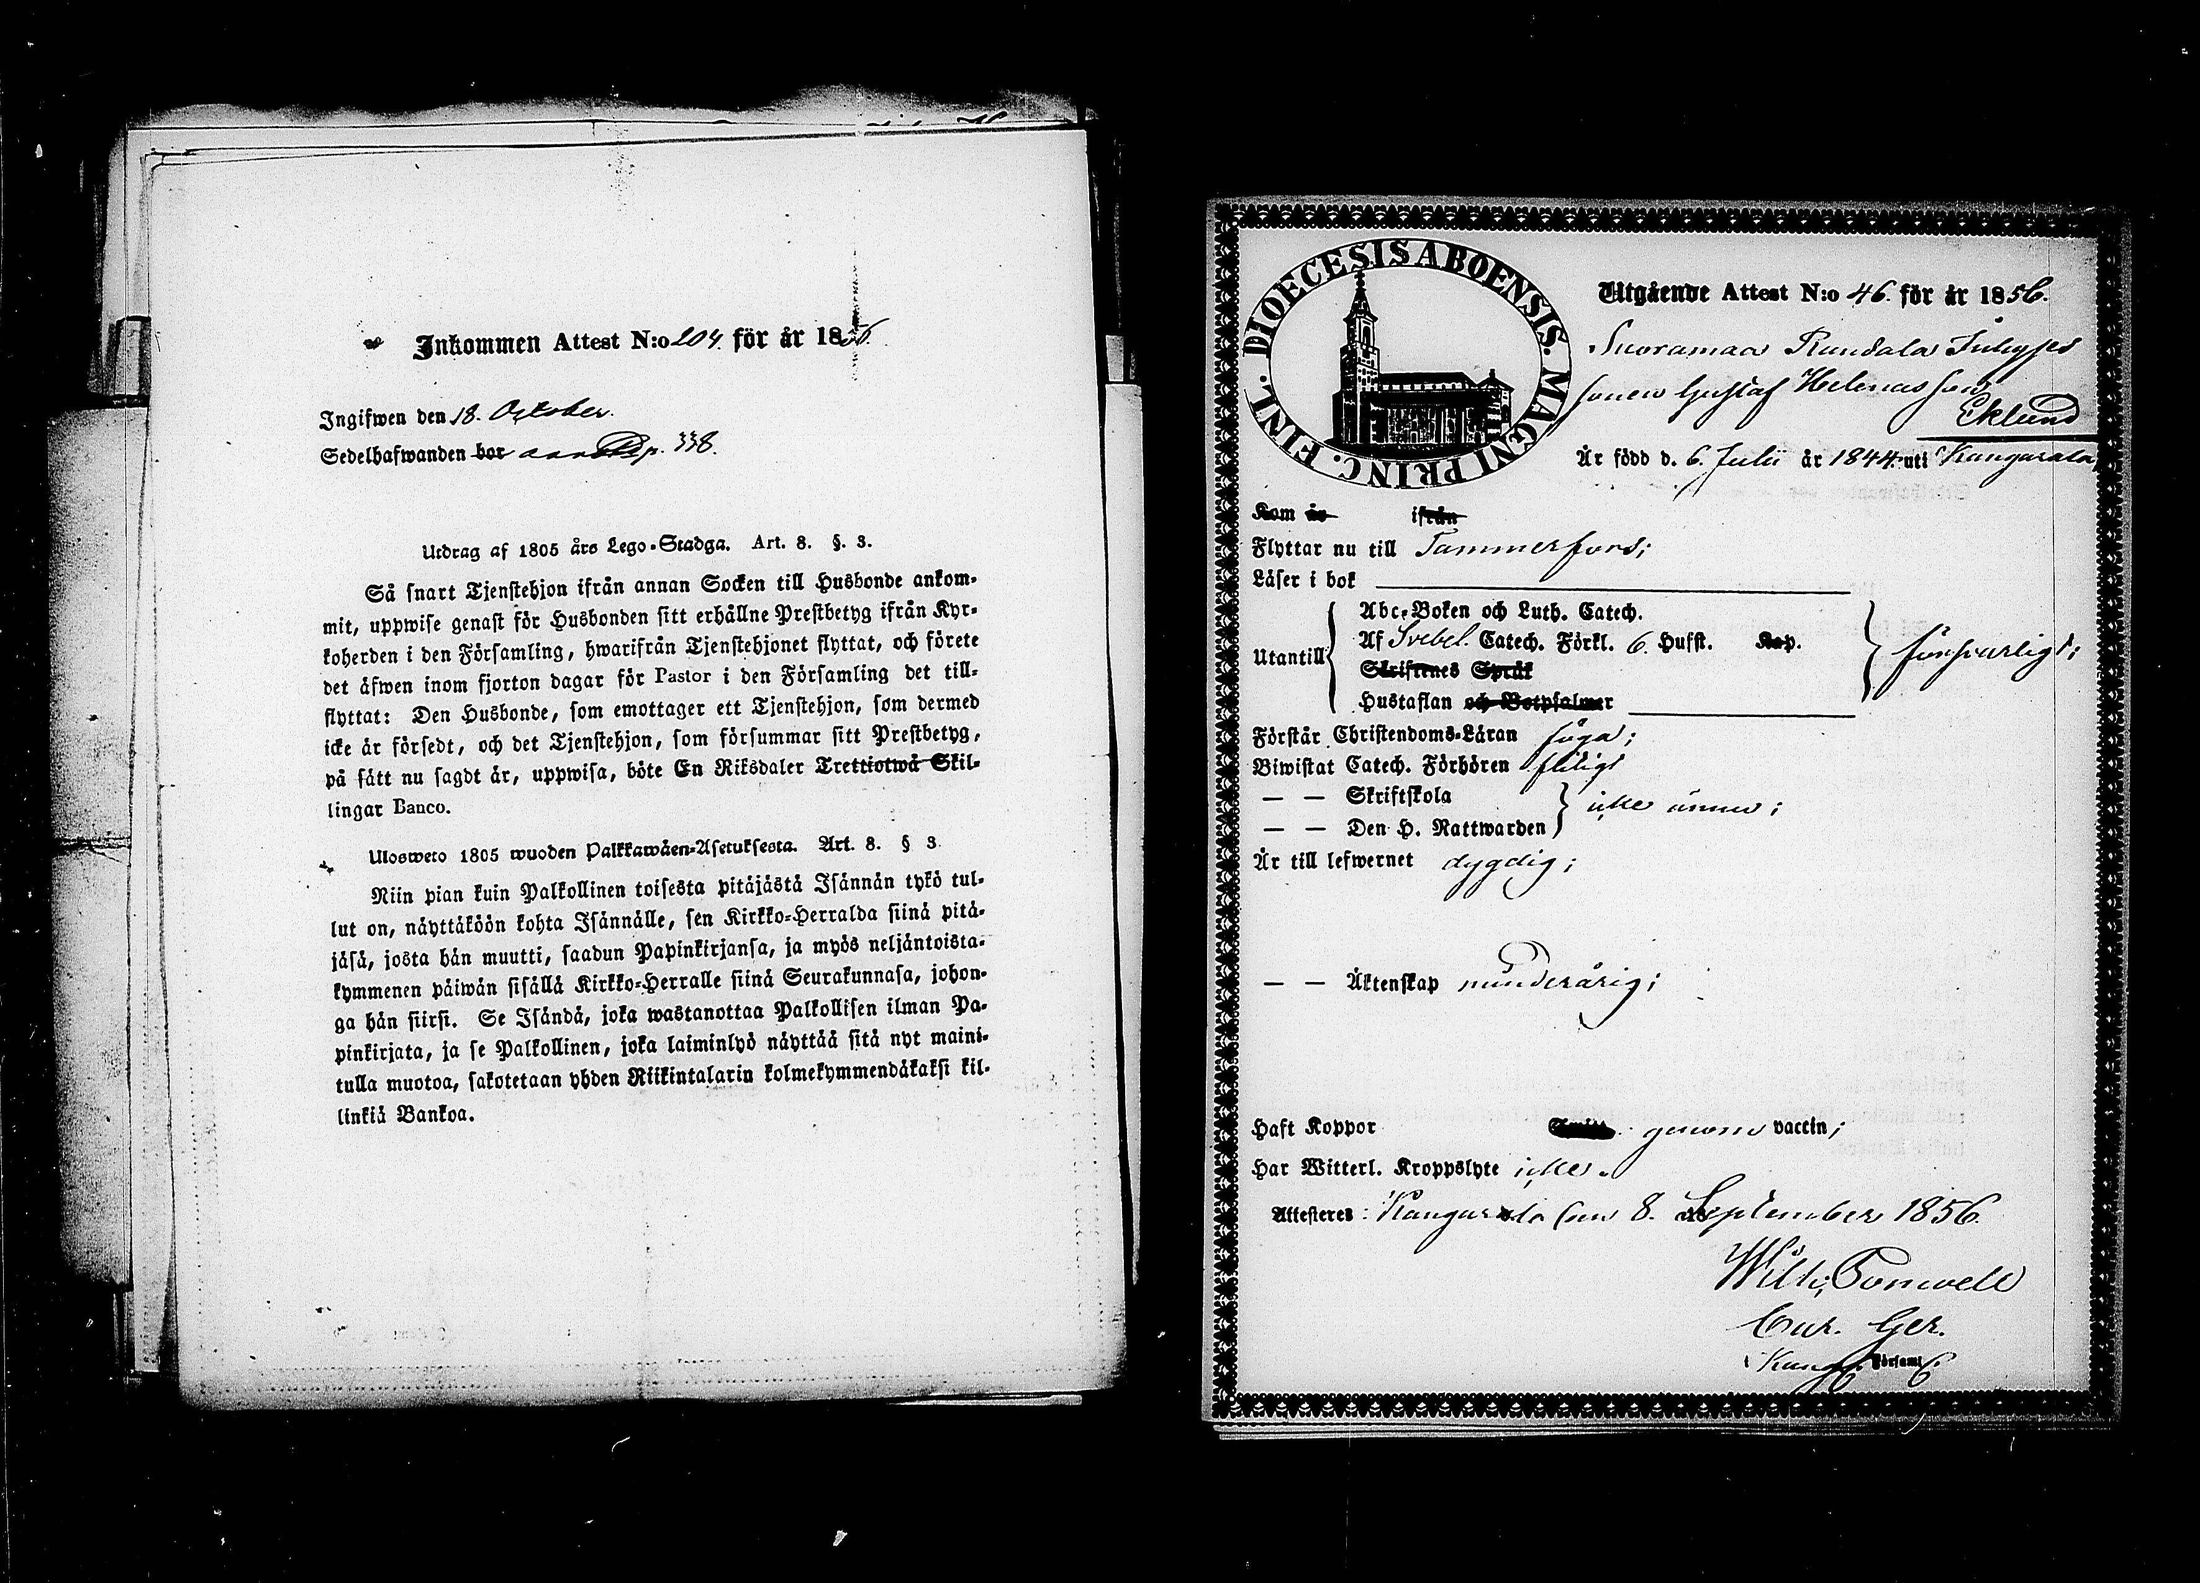 Inkommen Attest N:o 204. för år 1856.
Ingifwen den 18. October.
Sedelhafwanden bor p. 338.
Utdrag af 1805 års Lego-Stadga. Art. 8. §. 3.
Så snart Tjenstehjon ifrån annan Socken till Husbonde ankom-
mit, uppwise genast för Husbonden sitt erhållne Prestbetyg ifrån Kyr-
koherden i den Församling, hwarifrån Tjenstehjonet flyttat, och förete
det äfwen inom fjorton dagar för Pastor i den Församling det till-
flyttat: Den Husbonde, som emottager ett Tjenstehjon, som dermed
icke är försedt, och det Tjenstehjon, som försummar sitt Prestbetyg,
på sätt nu sagdt är, uppwisa, böte En Riksdaler Trettiotwå Skil-
lingar Banco.
Ulosweto 1805 wuoden Palkkawäen-Asetuksesta. Art. 8. § 3.
Niin pian kuin Palkollinen toisesta pitäjästä Isännän tykö tul-
lut on, näyttäköön kohta Isännälle, sen Kirkko-Herralda siinä pitä-
jäsä, josta hän muutti, saadun Papinkirjansa, ja myös neljäntoista-
kymmenen päiwän sisällä Kirkko-Herralle siinä Seurakunnasa, johon-
ga hän siirsi. Se Isändä, joka wastanottaa Palkollisen ilman Pa-
pinkirjata, ja se Palkollinen, joka laiminlyö näyttää sitä nyt maini-
tulla muotoa, sakotetaan yhden Riikintalarin kolmekymmendäkaksi kil-
linkiä Bankoa.
DIOECESIS ABOENSIS. MAGNI PRINC. FINL.
Utgående Attest N:o 46. för år 1856.
Suoramaa Rundala Inhyses
sonen Gustaf Helenas son
Eklund
Är född d. 6. Julii år 1844. uti Kangasala
Kom år ifrån
Flyttar nu till Tammerfors;
Läser i bok
Utantill
Abc-Boken och Luth. Catech.
Af Svebel. Catech. Förkl. 6. Hufst. Kap.
Skriftenes Språk
Hustaflan och Botpsalmer
försvarligt;
Förstår Christendoms-Läran föga;
Biwistat Catech. Förhören flitigt
— — Skriftskola
— — Den H. Nattwarden
icke ännu;
Är till lefwernet dygdig;
— — Äktenskap minderårig;
Haft Koppor genom vaccin;
Har Witterl. Kroppslyte icke.
Attesteres: Kangasala den 8. September 1856.
Wilh. Tomvell
Cur. Ger.
Kang. Församl